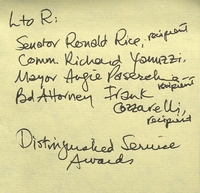 L to R:
Senator Ronald Rice, recipient
Comm Richard Yanuzzi,
Mayor Angie recipient
Bd Attorney Frank
Cozzarelli,
recipient
Distinguished Service
Awards